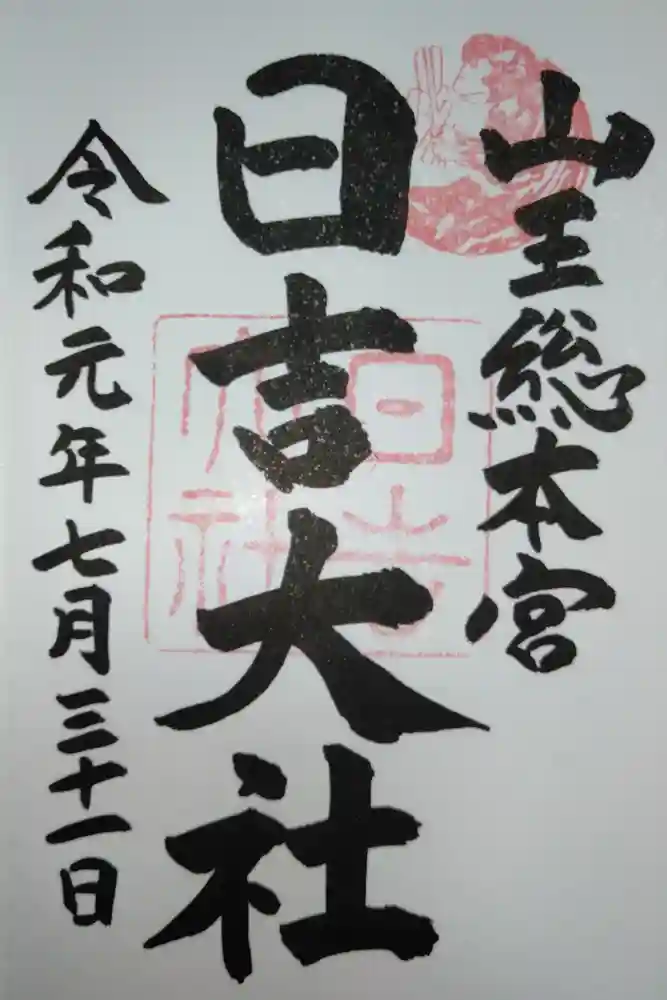 山王総本宮
日吉大社
日吉大社
令和元年七月三十一日